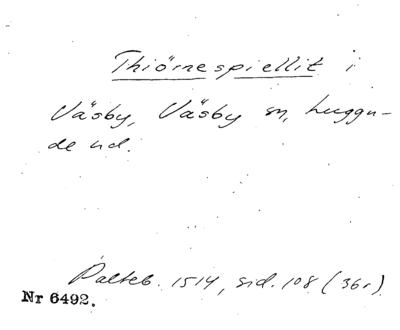 Thiörnespiellit i
Väsby, Väsby sn, Luggu-
de hd.
Palteb. 1514, sid. 108 (36r).
Nr 6492.